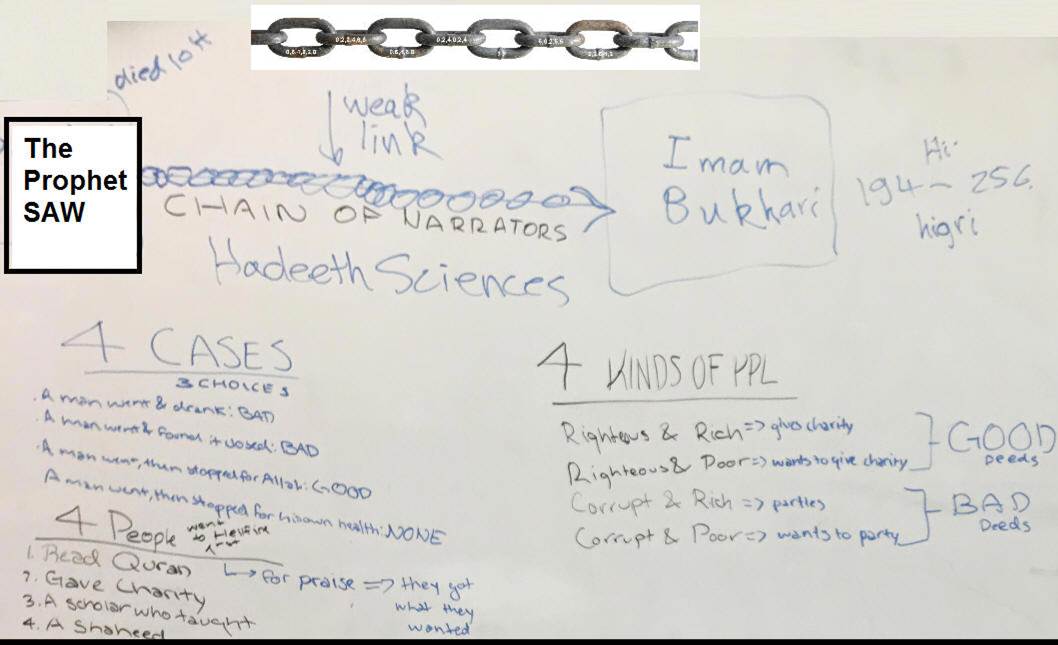 died 10 H
weak
link
The
Prophet
SAW
CHAIN OF NARRATORS
Hadeeth Sciences
Imam
Bukhari
194 - 256
higri
4 CASES
3 CHOICES
. A man went & drank: BAD
. A man went & found it closed: BAD
. A man went, then stopped for Allah: GOOD
A man went, then stopped for his own health: NONE
4 People went to Hellfire
1. Read Quran
2. Gave Charity
3. A scholar who taught
4. A Shaheed
for praise => they got
what they
wanted
4 KINDS OF PPL
Righteous & Rich => gives charity
Righteous & Poor => wants to give charity
GOOD
Deeds
Corrupt & Rich => parties
Corrupt & Poor => wants to party
BAD
Deeds